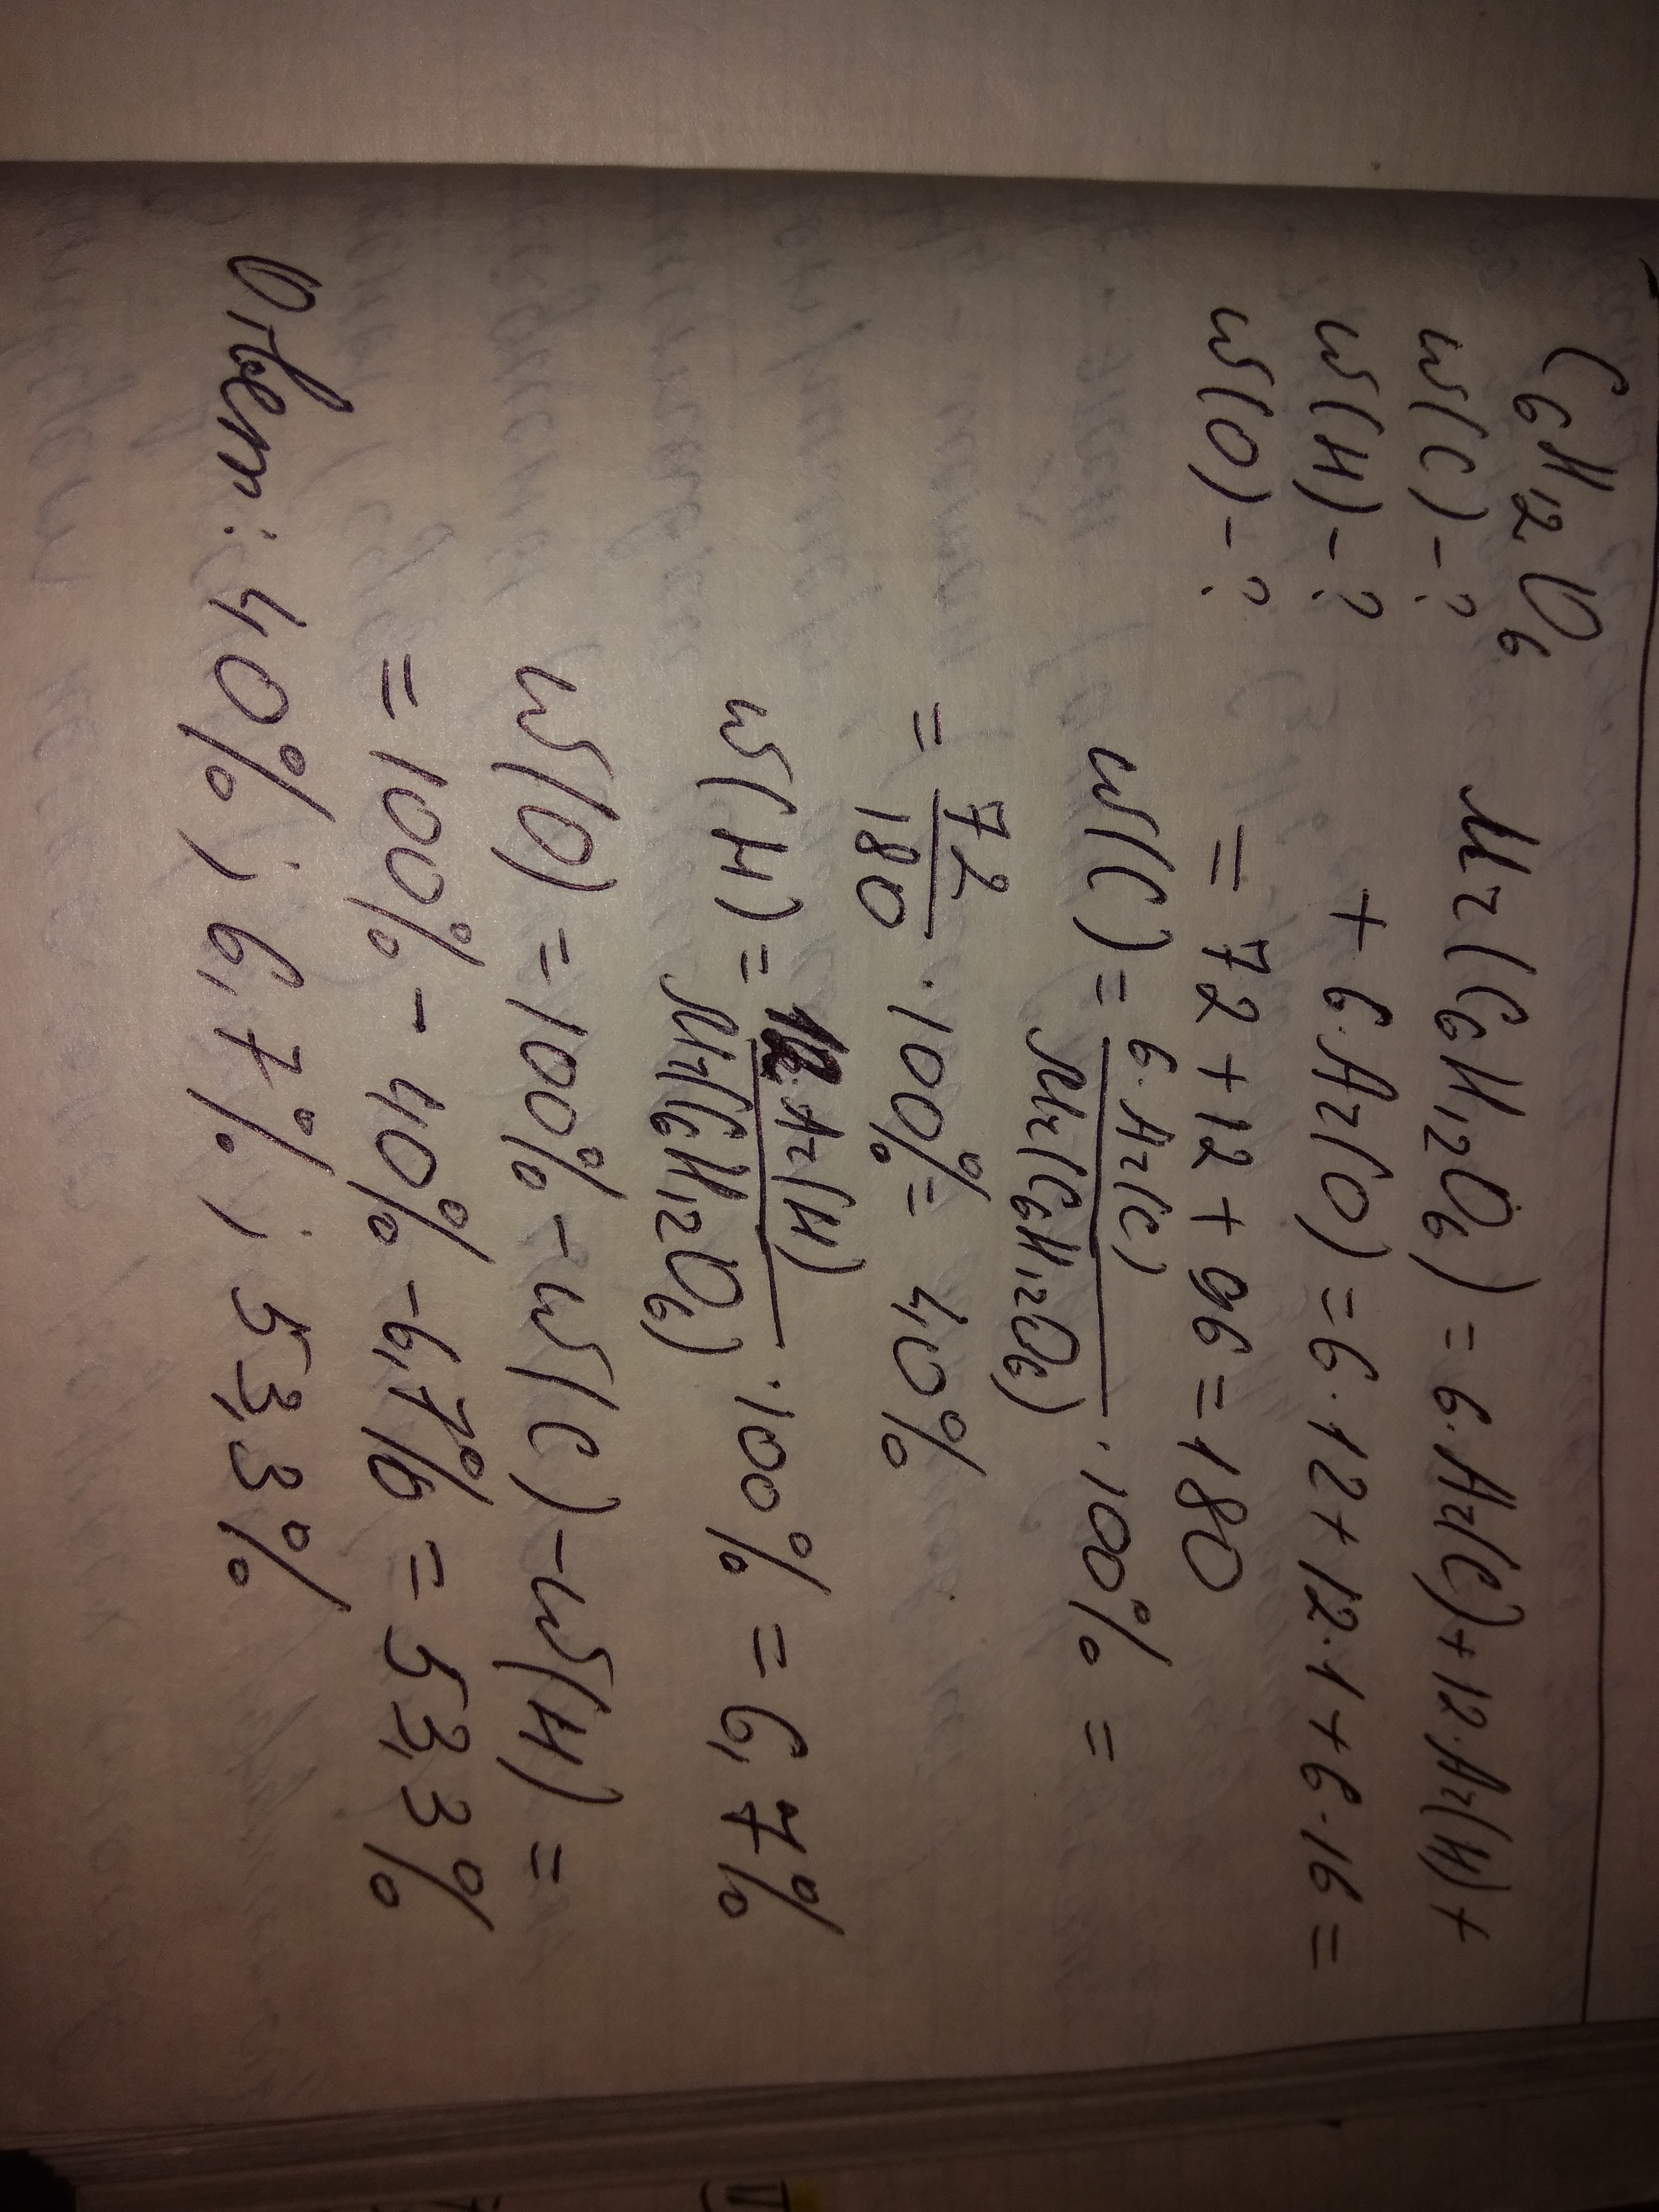 C₆H₁₂O₆
w(C)-?
w(H)-?
w(O)-?
Mr(C₆H₁₂O₆) = 6·Ar(C)+12·Ar(H)+
+ 6·Ar(O) = 6·12+12·1+6·16 =
= 72+12+96=180
w(C) = 6·Ar(C) / Mr(C₆H₁₂O₆) · 100% =
= 72/180 · 100% = 40%
w(H) = 12·Ar(H) / Mr(C₆H₁₂O₆) · 100% = 6,7%
w(O) = 100% - w(C) - w(H) =
= 100% - 40% - 6,7% = 53,3%
Ответ: 40%; 6,7%; 53,3%